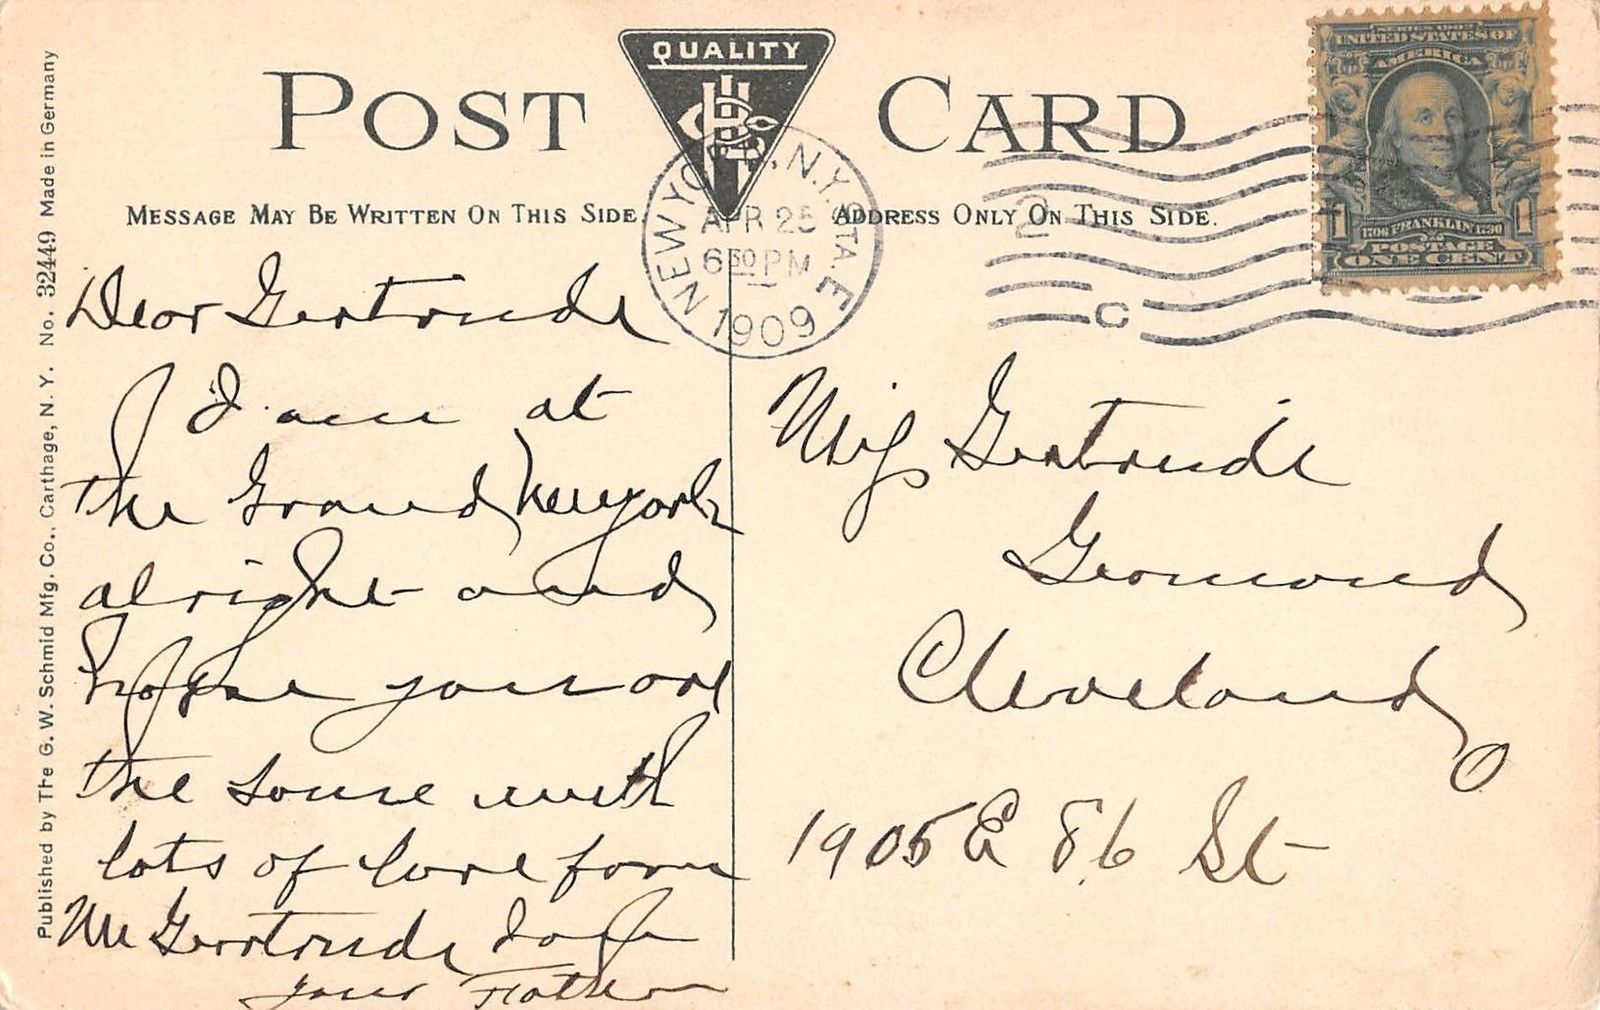 POST CARD
QUALITY
MESSAGE MAY BE WRITTEN ON THIS SIDE.
ADDRESS ONLY ON THIS SIDE.
Published by The G. W. Schmid Mfg. Co., Carthage, N. Y. No. 32449 Made in Germany
NEW YORK, N.Y. STA. F
APR 25
6 30 PM
1909
2
C
SERIES 1902
UNITED STATES OF
AMERICA
1 1706 FRANKLIN 1790 1
POSTAGE
ONE CENT
Dear Gertrude
I am at
the Grand New york
alright and
hope you are
the same with
lots of love from
Me Gerrtrude
your Father
Miss Gertrude
Germond
Cleveland
O
1905 E 86 St